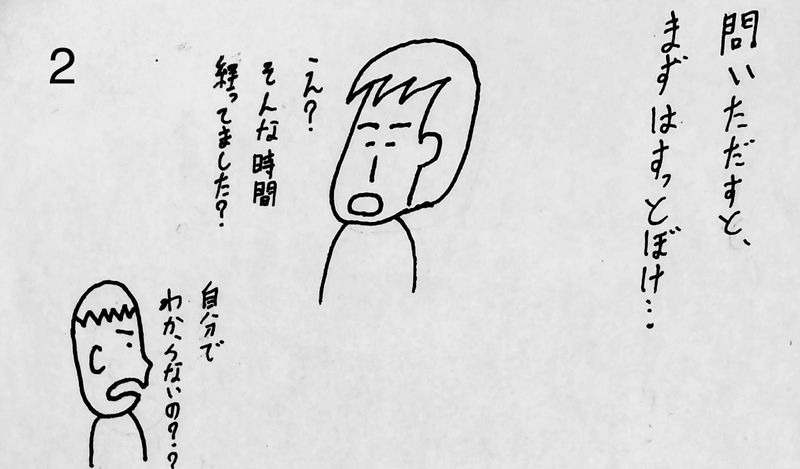 問いただすと、
まずはすっとぼけ…。
え?
そんな時間
経ってました?
自分で
わからないの??
2